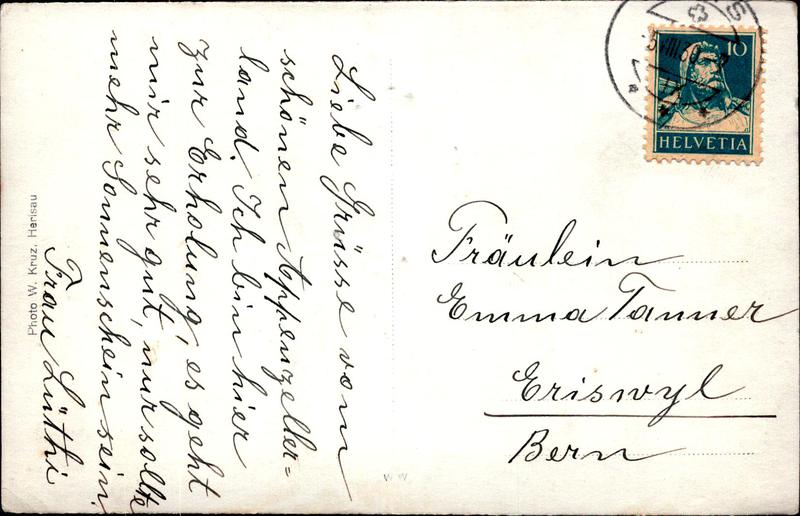 Liebe Grüsse vom
schönen Appenzeller=
land. Ich bin hier
zur Erholung, es geht
mir sehr gut, nur sollte
mehr Sonnenschein sein.
Frau Lüthi
Photo W. Kruz, Herisau
10
HELVETIA
Fräulein
Emma Tanner
Eriswyl
Bern